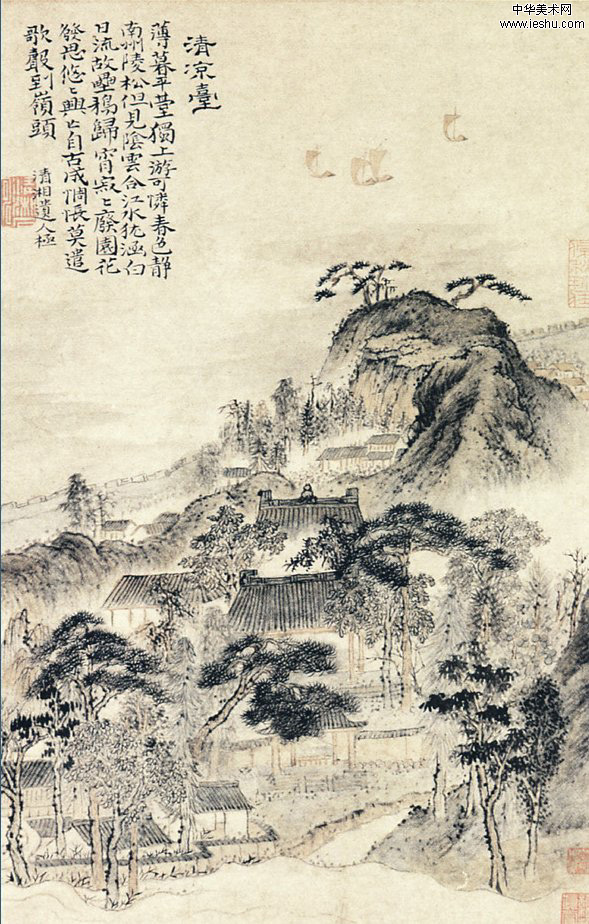 中华美术网
www.ieshu.com
清凉臺
薄暮平臺獨上游可憐春色靜
南州陵松但見陰雲合江水犹涵白
日流故壘鵶歸宵寂〻廢園花
發思悠〻興亡自古成惆悵莫遣
歌聲到嶺頭
清湘遺人極